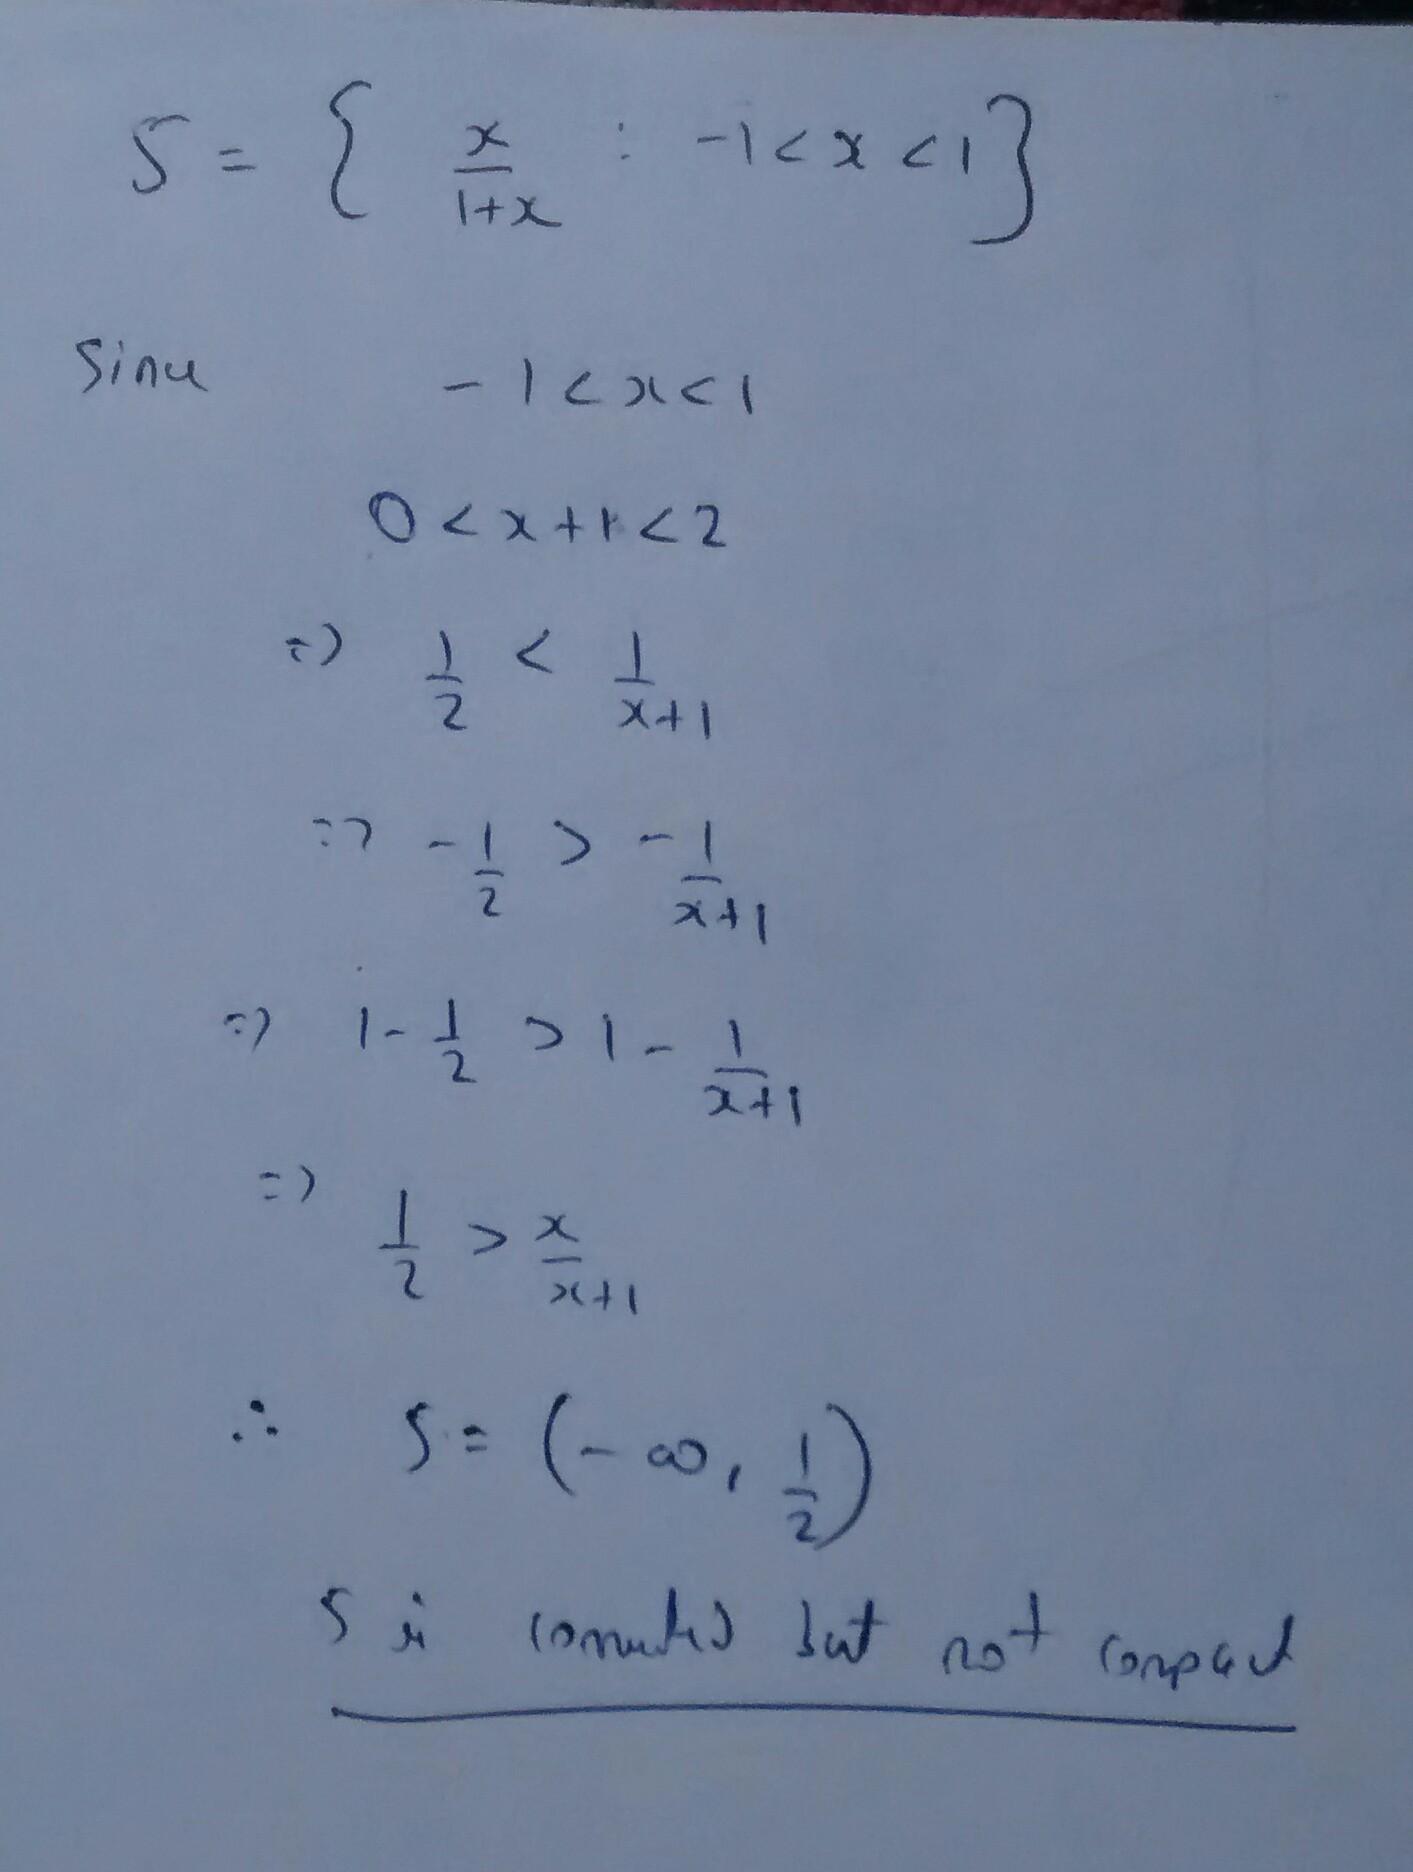 S = { x/(1+x) : -1 < x < 1 }
Since -1 < x < 1
0 < x + 1 < 2
=> 1/2 < 1/(x+1)
=> -1/2 > -1/(x+1)
=> 1 - 1/2 > 1 - 1/(x+1)
=> 1/2 > x/(x+1)
∴ S = (-∞, 1/2)
S is connected but not compact